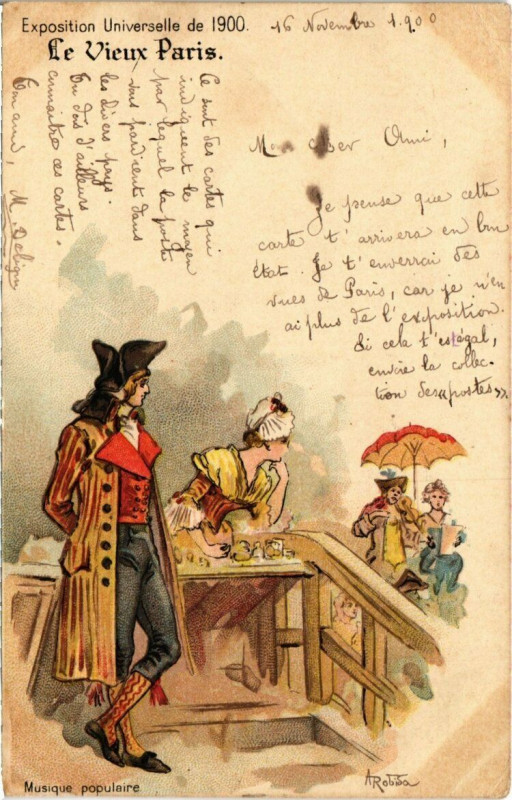 Exposition Universelle de 1900.
Le Vieux Paris.
16 Novembre 1.900
Mon cher Ami,
Je pense que cette
carte t'arrivera en bon
état. Je t'enverrai des
vues de Paris, car je n'en
ai plus de l'exposition.
Si cela t'est égal,
envoie la collec-
tion des «postes».
Ce sont des cartes qui
indiquent le moyen
par lequel la poste
vous parvient dans
les divers pays.
Tu dois d'ailleurs
connaître ces cartes.
Ton ami, M.
Musique populaire
A Robida